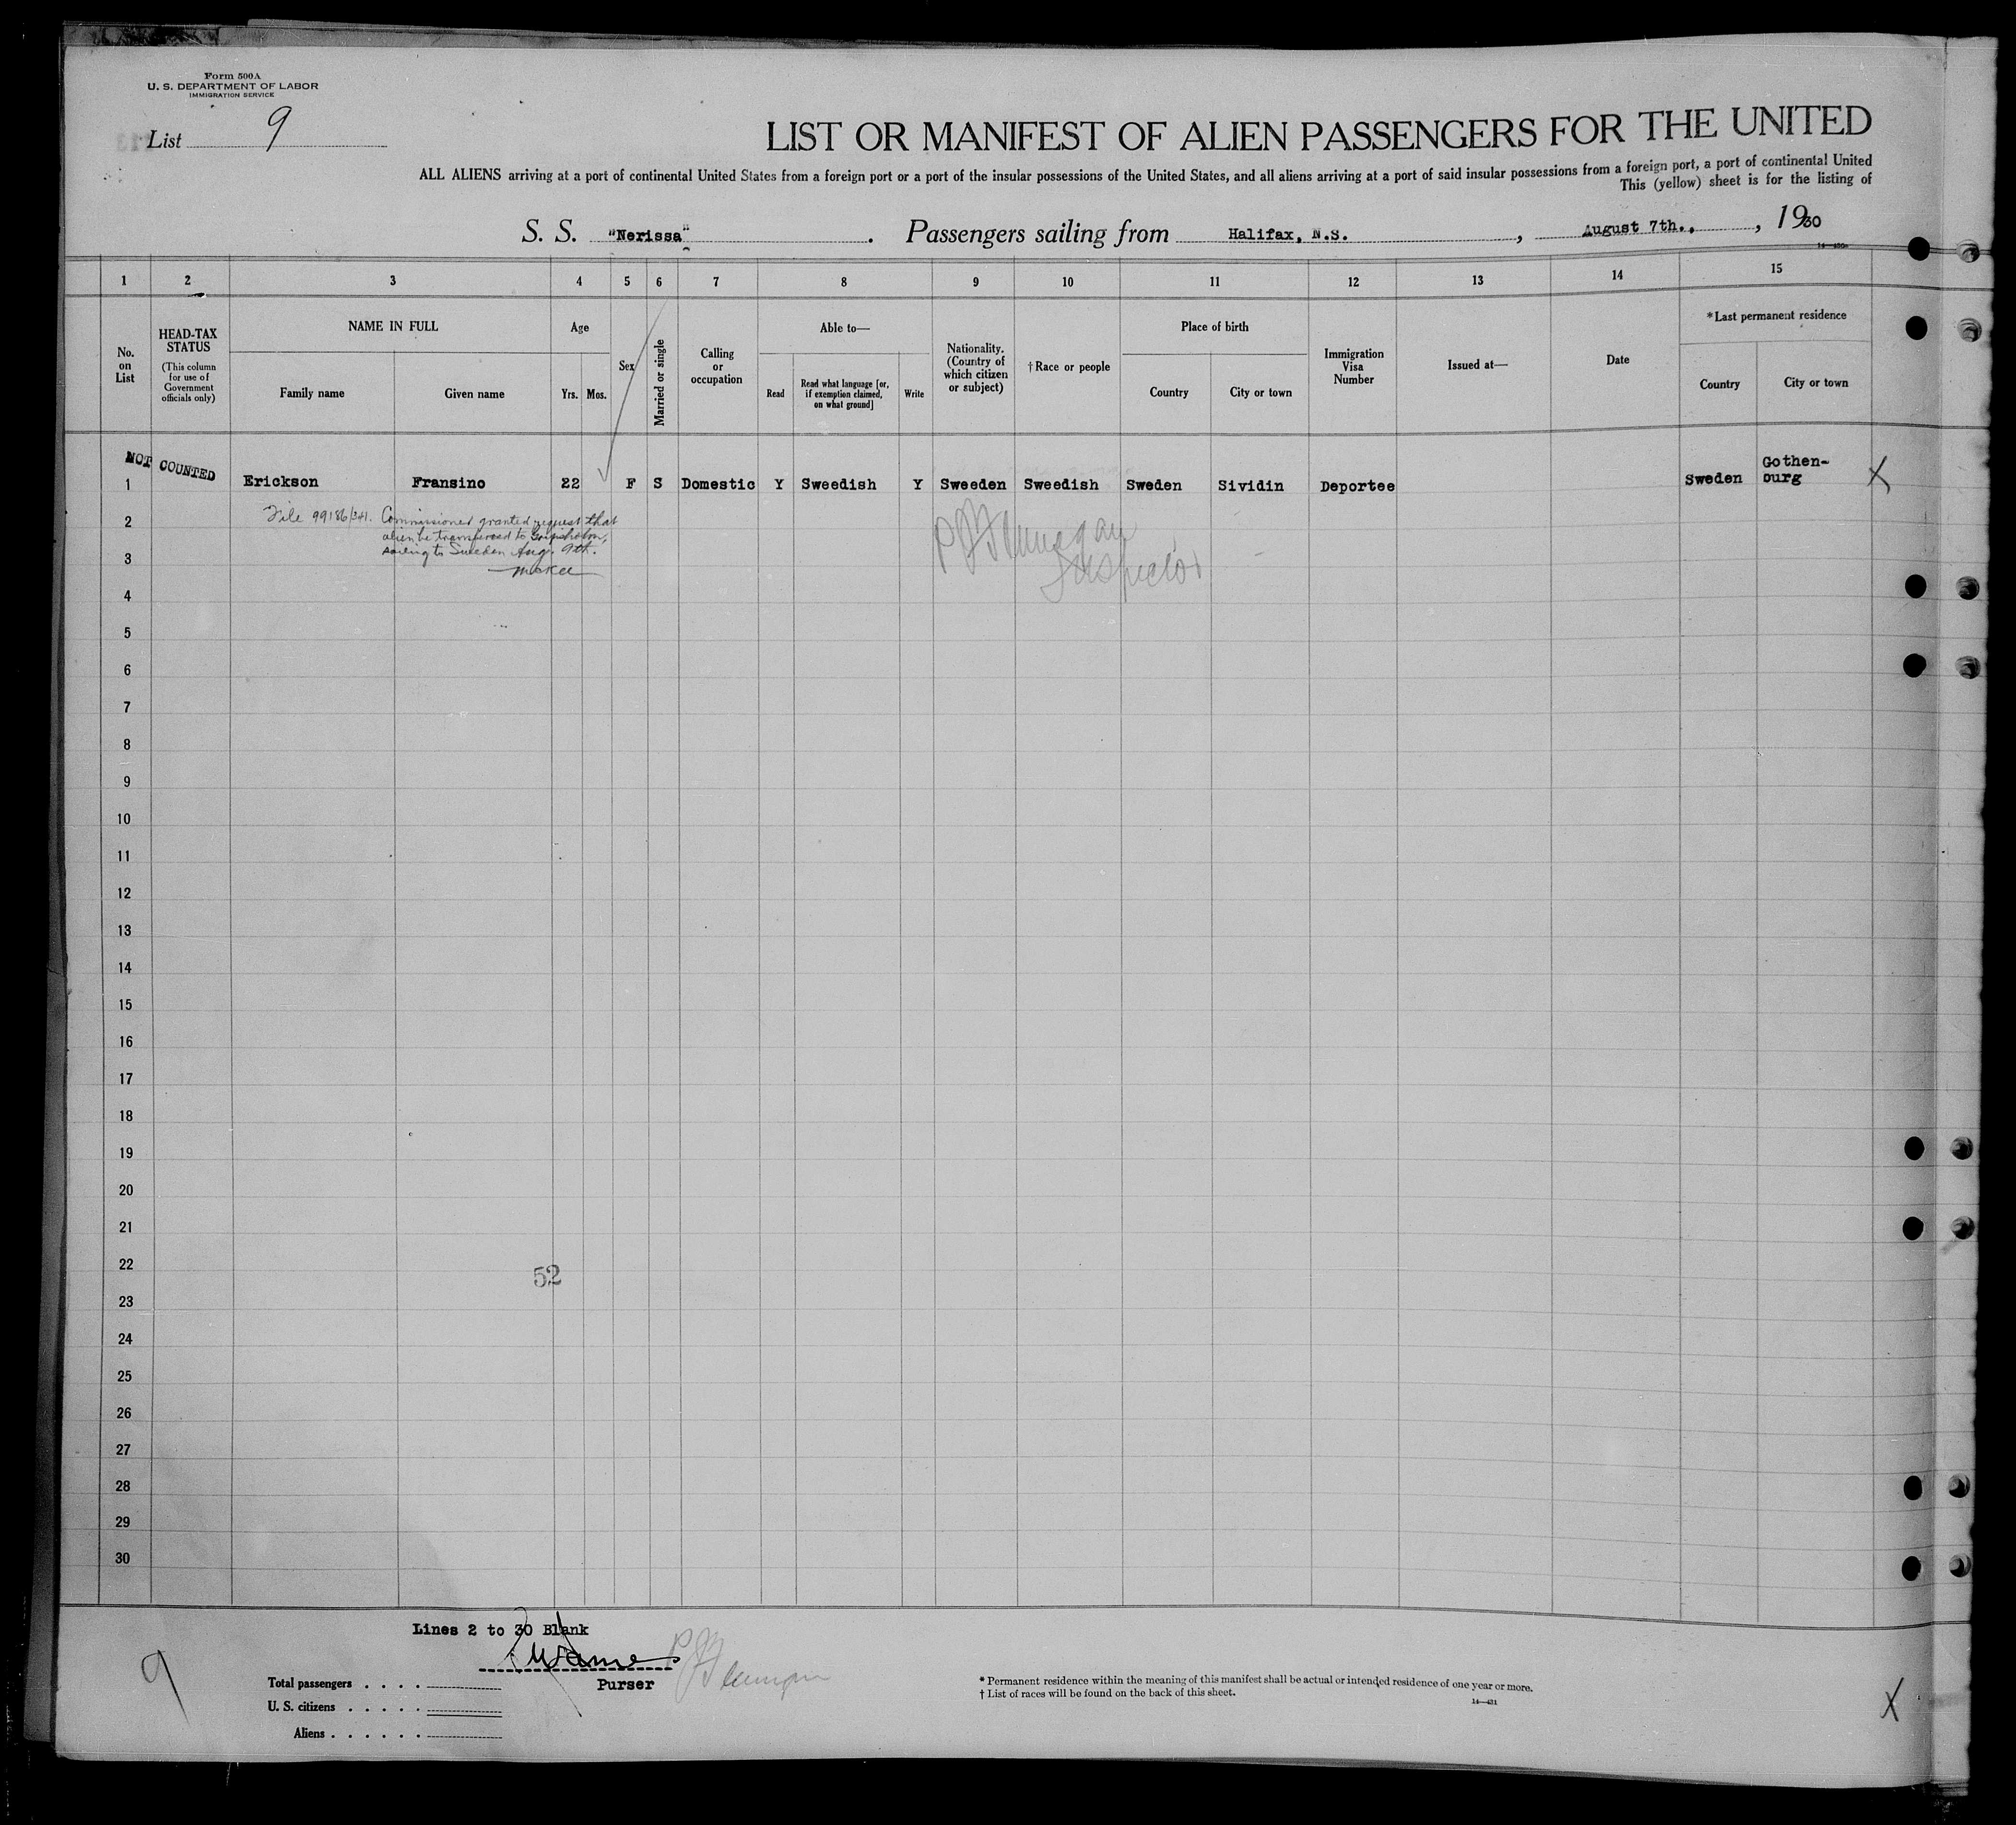 Form 500A
U. S. DEPARTMENT OF LABOR
IMMIGRATION SERVICE
List 9
LIST OR MANIFEST OF ALIEN PASSENGERS FOR THE UNITED
ALL ALIENS arriving at a port of continental United States from a foreign port or a port of the insular possessions of the United States, and all aliens arriving at a port of said insular possessions from a foreign port, a port of continental United
This (yellow) sheet is for the listing of
S. S. "Nerissa". Passengers sailing from Halifax, N.S., August 7th., , 1930
1 2 3 4 5 6 7 8 9 10 11 12 13 14 15
No. on List
HEAD-TAX STATUS
(This column for use of Government officials only)
NAME IN FULL
Family name
Given name
Age
Yrs.
Mos.
Sex
Married or single
Calling or occupation
Able to—
Read
Read what language [or, if exemption claimed, on what ground]
Write
Nationality. (Country of which citizen or subject)
†Race or people
Place of birth
Country
City or town
Immigration Visa Number
Issued at—
Date
*Last permanent residence
Country
City or town
NOT COUNTED
1 Erickson Fransino 22 F S Domestic Y Sweedish Y Sweeden Sweedish Sweden Sividin Deportee Sweden Gothen-
burg X
File 99186/341. Commissioner granted request that
alien be transferred to Gripsholm,
sailing to Sweden Aug. 9th.
McKee
Inspector
2
3
4
5
6
7
8
9
10
11
12
13
14
15
16
17
18
19
20
21
22
52
23
24
25
26
27
28
29
30
Lines 2 to 30 Blank
Purser
9
Total passengers . . . .
U. S. citizens . . . . .
Aliens . . . . . .
* Permanent residence within the meaning of this manifest shall be actual or intended residence of one year or more.
† List of races will be found on the back of this sheet.
14—431
X